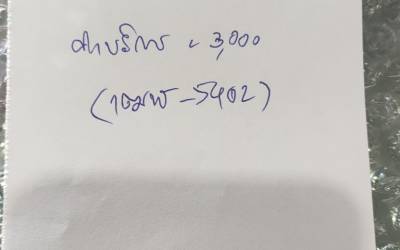 ค่าบริการ = 3,000
(1ฒพ-5402)